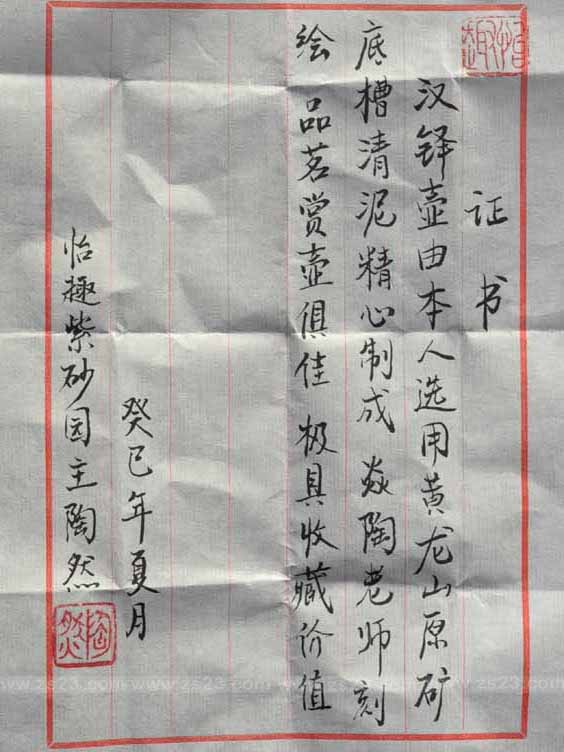 证书
汉铎壶由本人选用黄龙山原矿
底槽清泥精心制成 焱陶老师刻
绘 品茗赏壶俱佳 极具收藏价值
癸巳年夏月
怡趣紫砂园主陶然
陶然
www.zs23.com